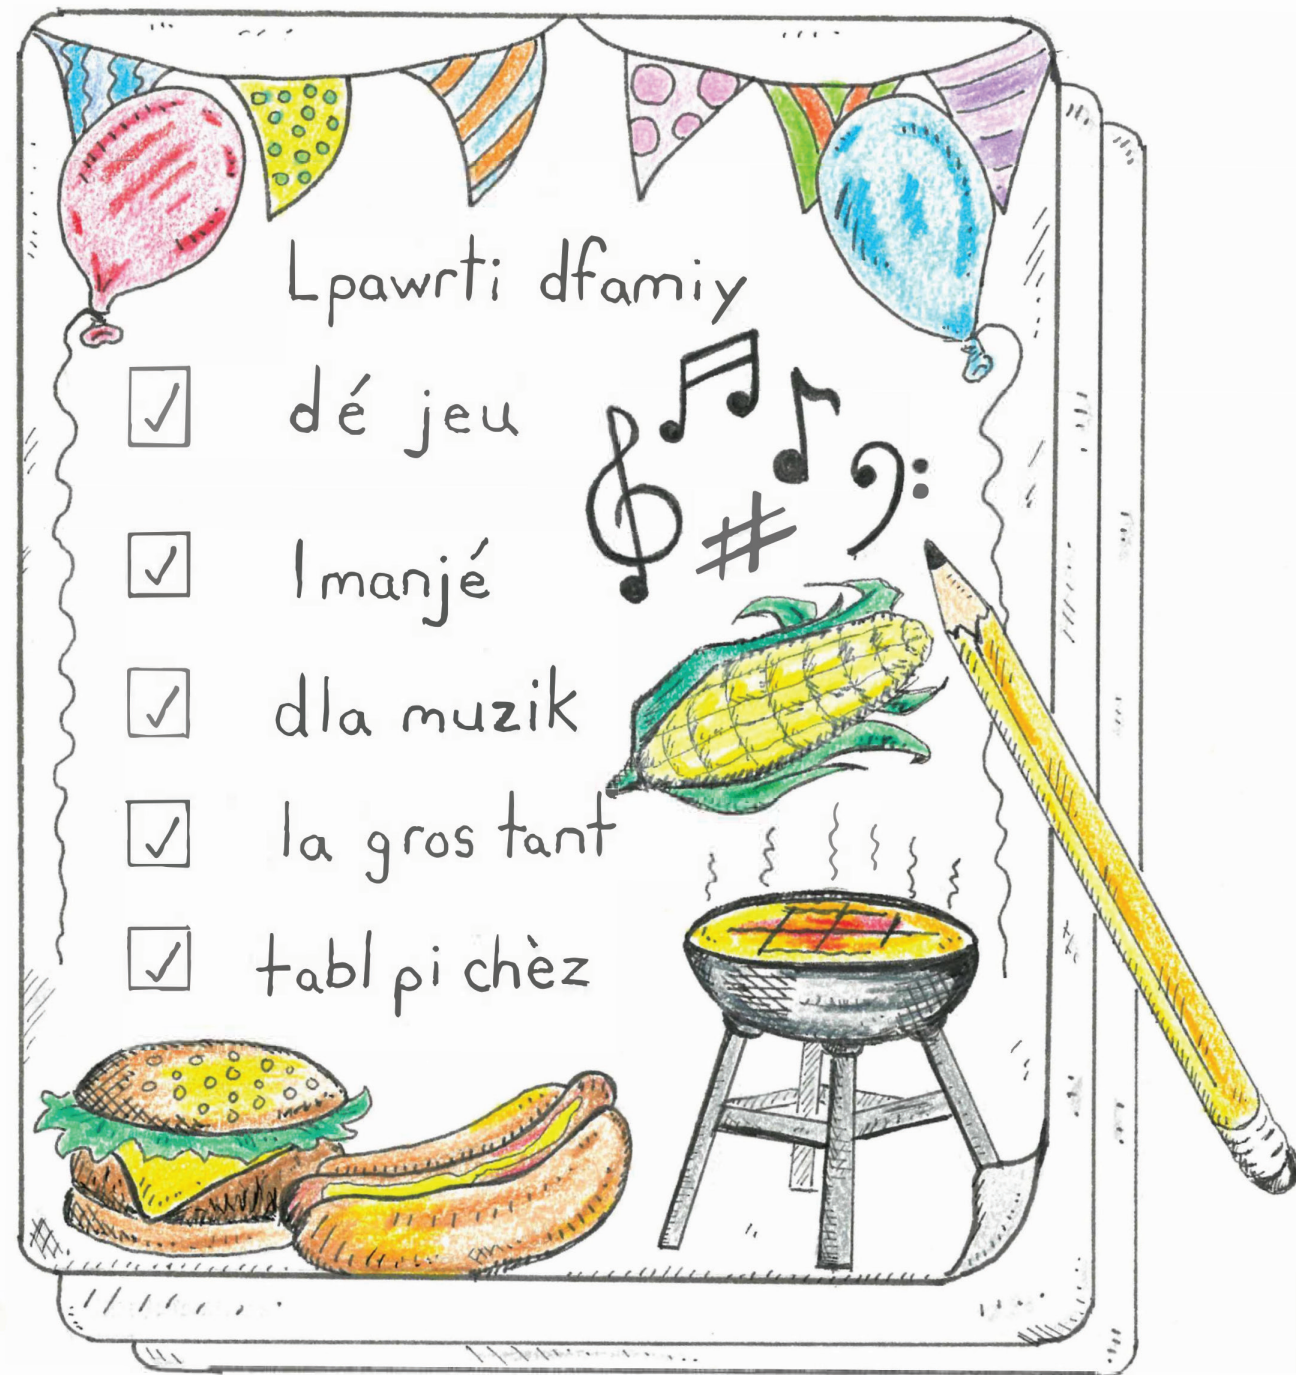 Lpawrti dfamiy
dé jeu
l manjé
dla muzik
la gros tant
tabl pi chèz